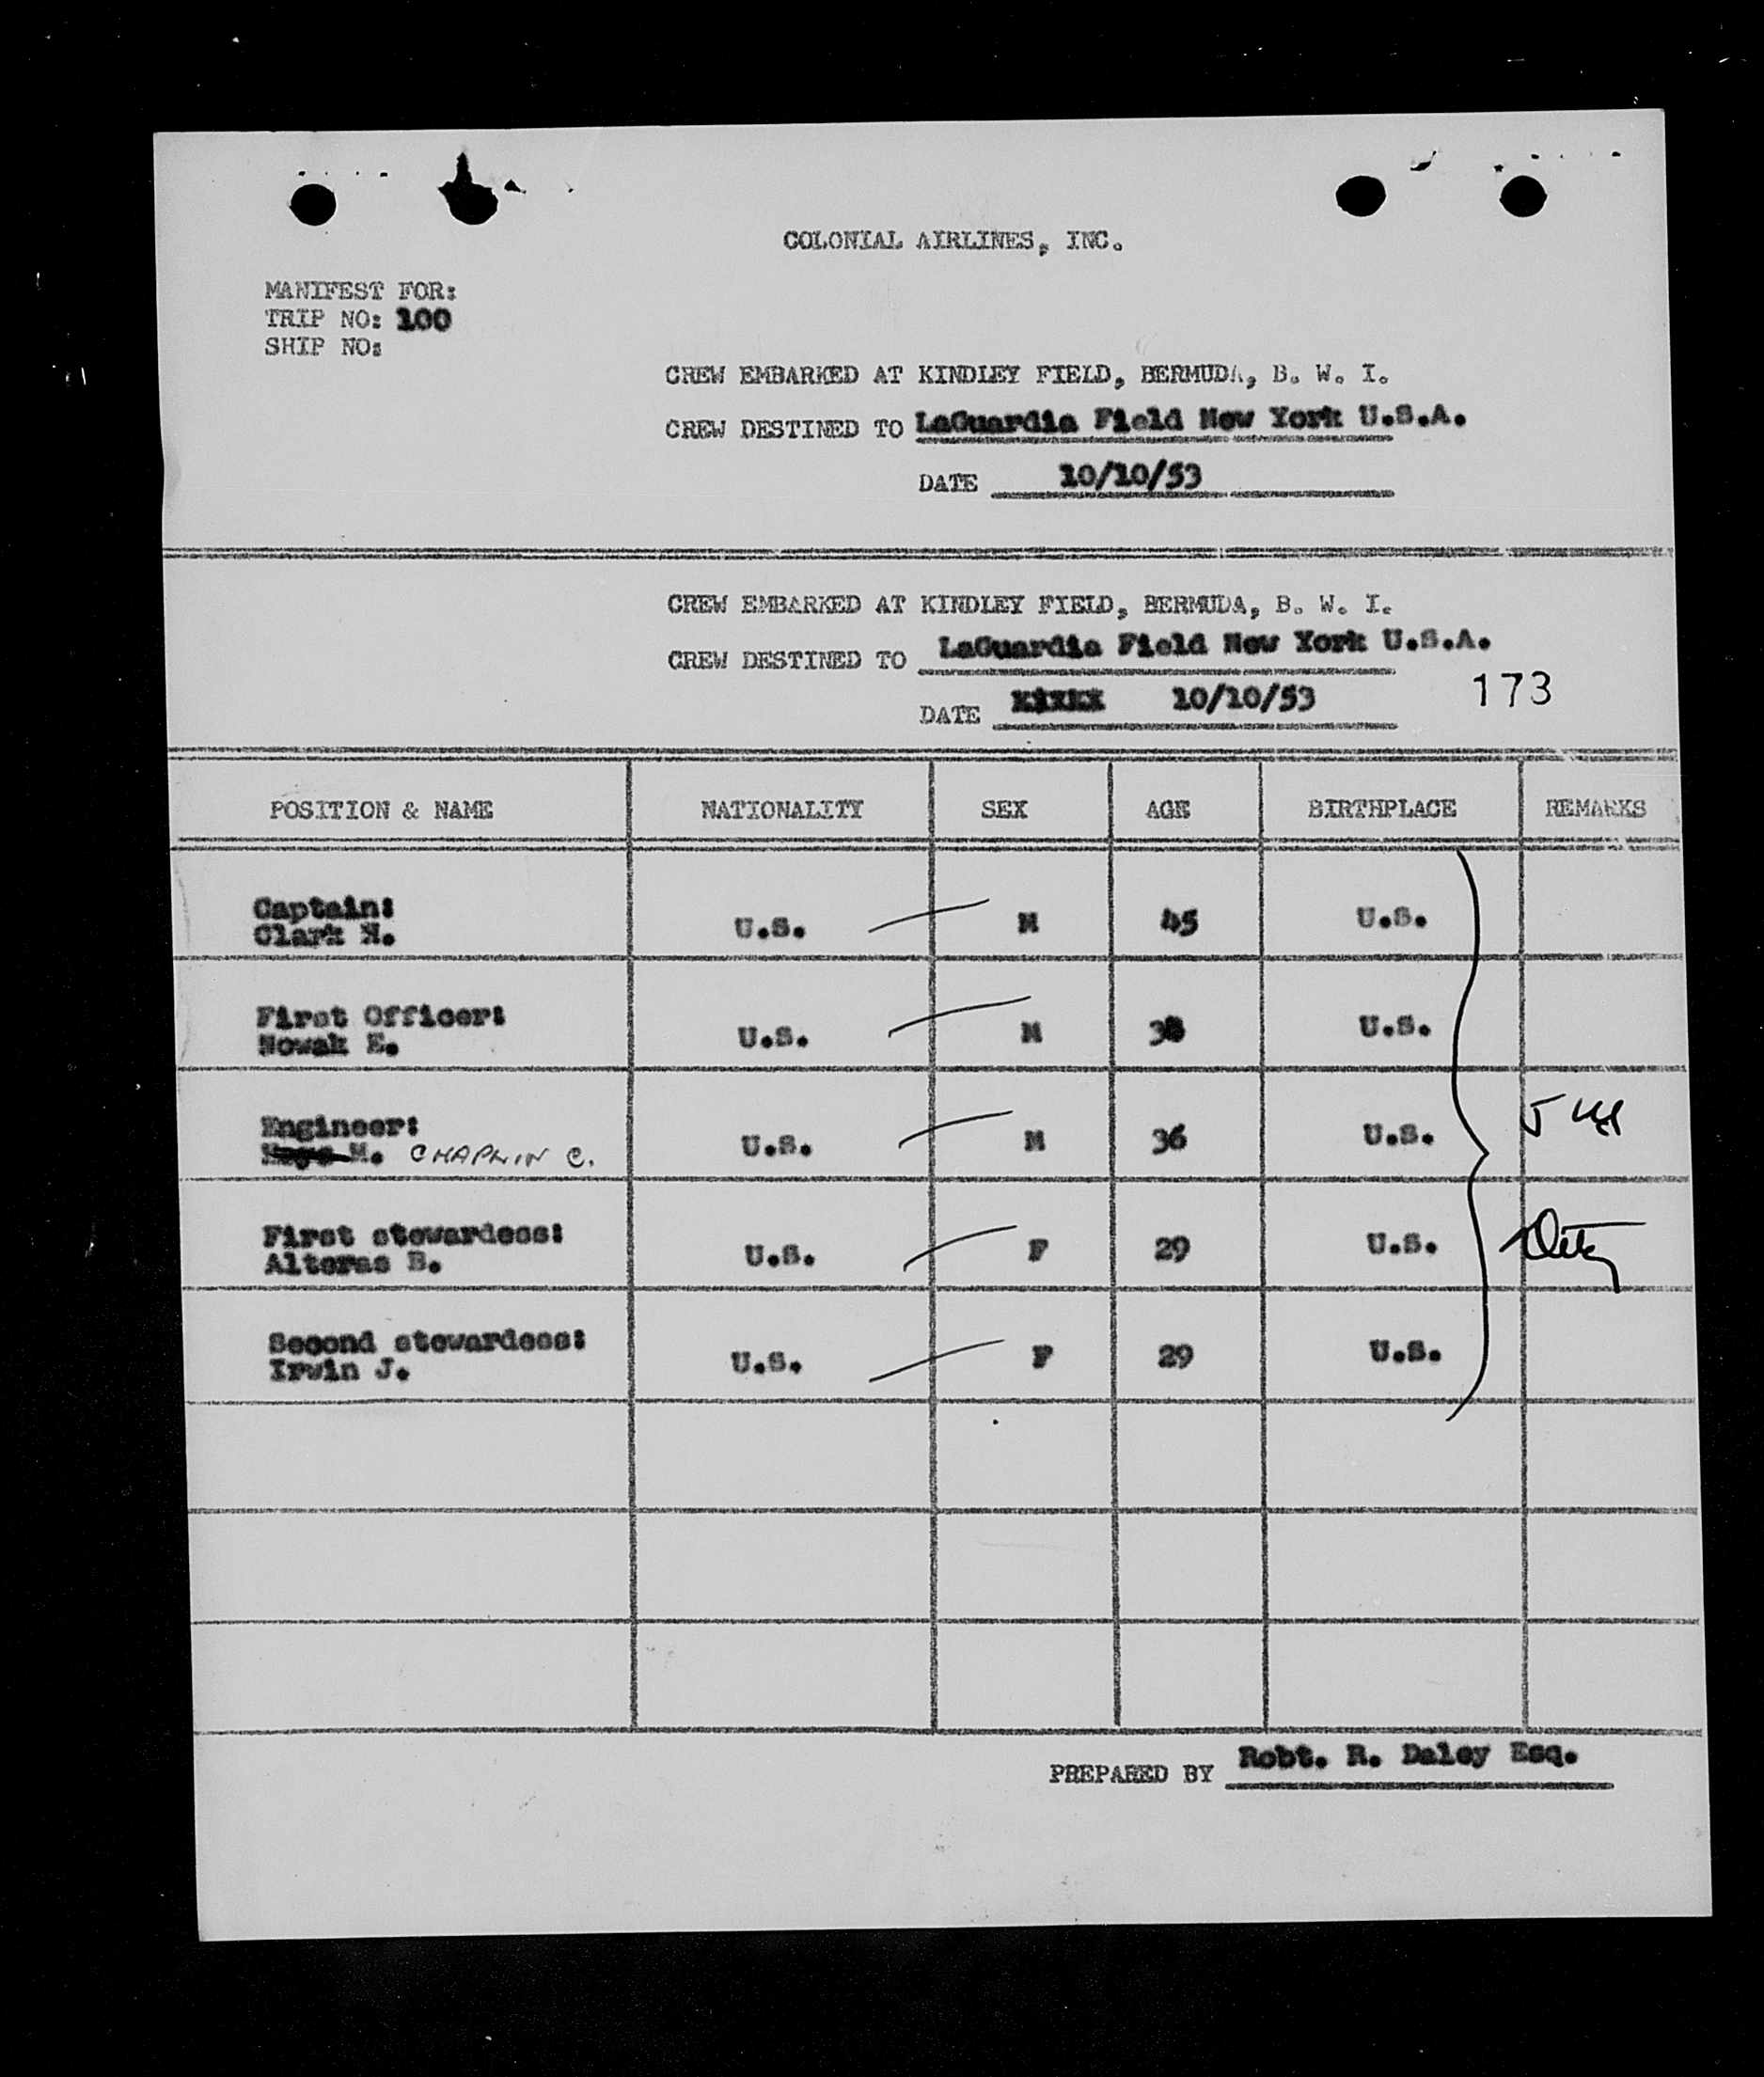 COLONIAL AIRLINES, INC.
MANIFEST FOR:
TRIP NO: 100
SHIP NO:
CREW EMBARKED AT KINDLEY FIELD, BERMUDA, B. W. I.
CREW DESTINED TO LaGuardia Field New York U.S.A.
DATE 10/10/53
CREW EMBARKED AT KINDLEY FIELD, BERMUDA, B. W. I.
CREW DESTINED TO LaGuardia Field New York U.S.A.
DATE 10/10/53
173
POSITION & NAME NATIONALITY SEX AGE BIRTHPLACE REMARKS
Captain:
Clark N. U.S. M 45 U.S.
First Officer:
Nowak E. U.S. M 38 U.S.
Engineer:
M. CHAPLIN C. U.S. M 36 U.S.
First stewardess:
Alteras B. U.S. F 29 U.S.
Second stewardess:
Irwin J. U.S. F 29 U.S.
PREPARED BY Robt. R. Daley Esq.